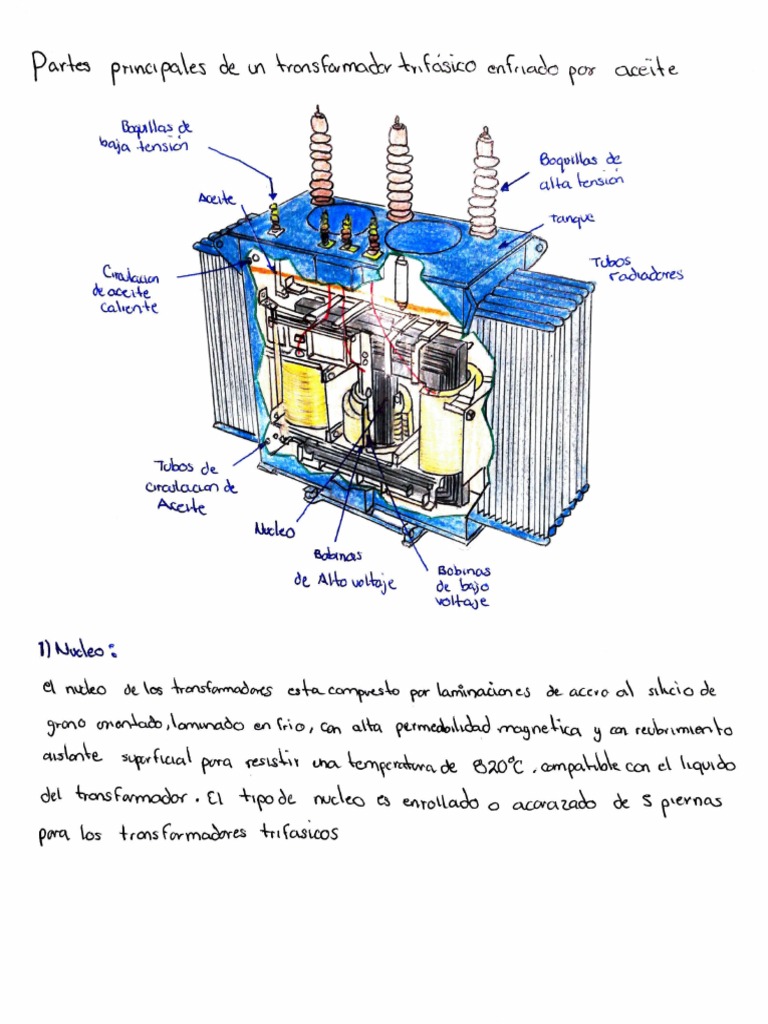 Partes principales de un transformador trifásico enfriado por aceite
Boquillas de
baja tensión
Aceite
Boquillas de
alta tensión
tanque
Tubos
radiadores
Circulacion
de aceite
caliente
Tubos de
circulacion de
Aceite
Nucleo
Bobinas
de Alto voltaje
Bobinas
de bajo
voltaje
1) Nucleo:
el nucleo de los transformadores esta compuesto por laminaciones de acero al silicio de
grano orientado, laminado en frio, con alta permeabilidad magnetica y con recubrimiento
aislante superficial para resistir una temperatura de 820°C. compatible con el liquido
del transformador. El tipo de nucleo es enrollado o acorazado de 5 piernas
para los transformadores trifasicos